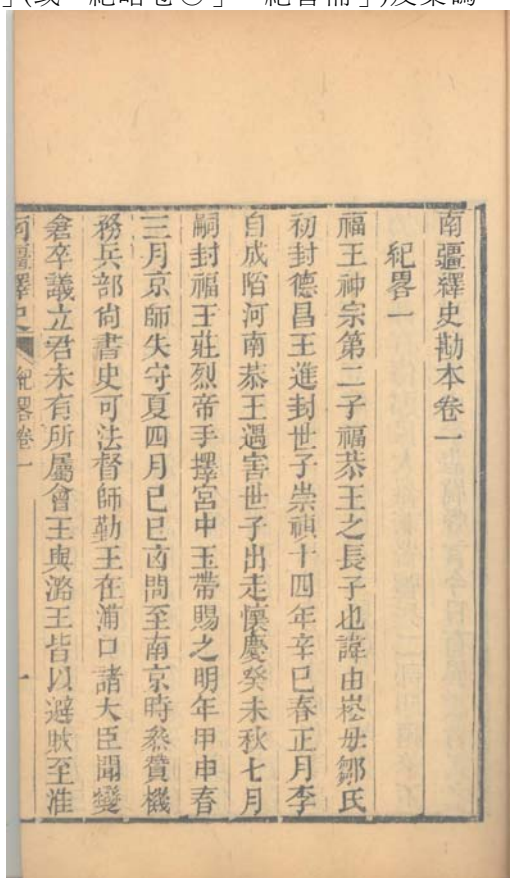 」(或「紀略卷○」「紀
南疆繹史勘本卷一
紀畧一
福王神宗第二子福恭王之長子也諱由崧母鄒氏
初封德昌王進封世子崇禎十四年辛巳春正月李
自成陷河南恭王遇害世子出走懷慶癸未秋七月
嗣封福王莊烈帝手擇宮中玉帶賜之明年甲申春
三月京師失守夏四月己巳凶問至南京時叅贊機
務兵部尚書史可法督師勤王在浦口諸大臣聞變
倉卒議立君未有所屬會王與潞王皆以避賊至淮
南疆繹史 紀畧卷一 一